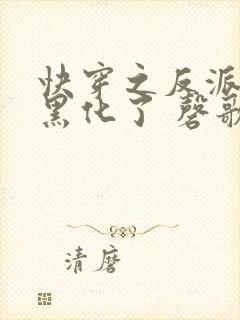 快穿之反派
黑化了 磬歌
清磨